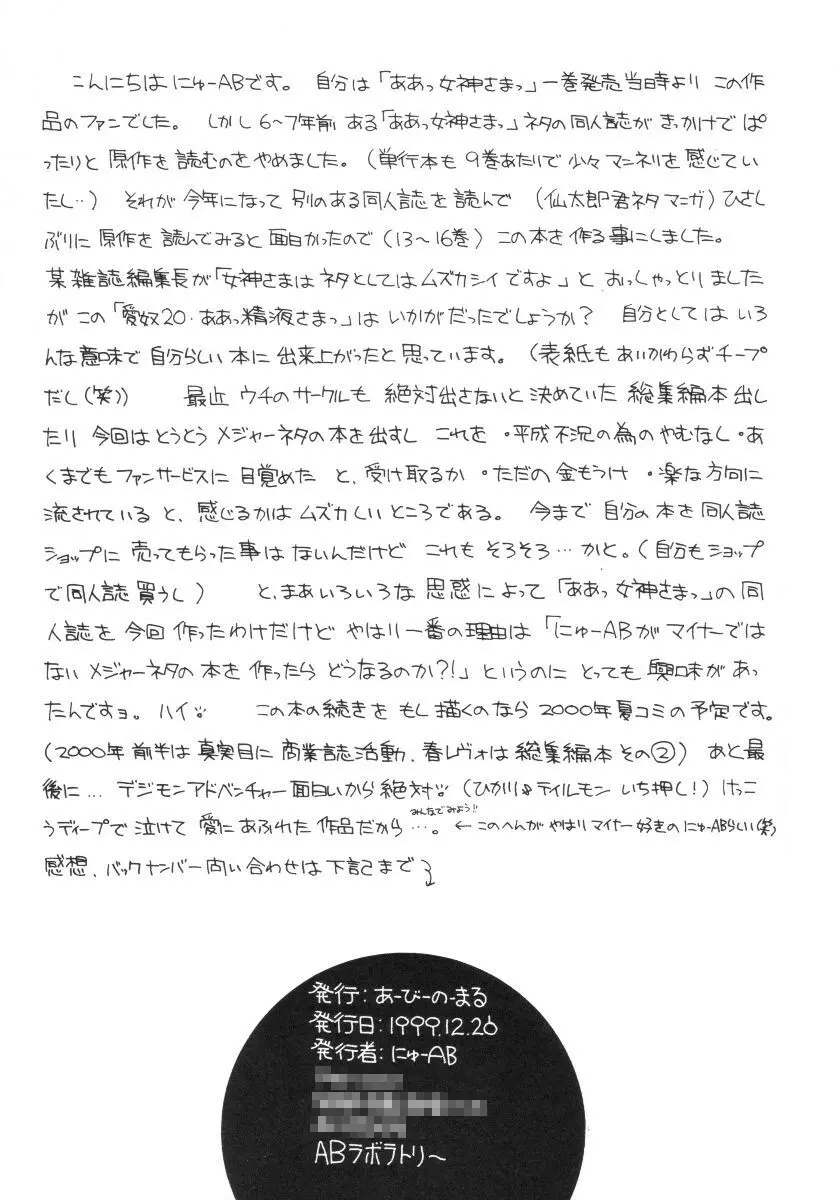 こんにちは にゅーABです。 自分は「ああっ女神さまっ」一巻発売当時より この作
品のファンでした。 しかし 6〜7年前 ある「ああっ女神さまっ」ネタの同人誌が きっかけで ぱ
ったりと 原作を 読むのをやめました。(単行本も 9巻あたりで少々 マンネリを感じてい
たし‥) それが 今年になって 別のある同人誌を 読んで (仙太郎君ネタ マンガ)ひさし
ぶりに 原作を 読んでみると面白かったので(13〜16巻)この本を作る事にしました。
某雑誌編集長が「女神さまは ネタとしてはムズカシイですよ」と おっしゃっとりました
が この「愛奴20・ああっ精液さまっ」は いかがだったでしょうか? 自分としては いろ
んな意味で 自分らしい 本に 出来上がったと思っています。(表紙も あいかわらずチープ
だし(笑)) 最近 ウチのサークルも 絶対出さないと 決めていた 総集編本 出し
たり 今回は とうとう メジャーネタの本を出すし これを ・平成不況の為のやむなし ・あ
くまでも ファンサービスに 目覚めた と、受け取るか ・ただの 金もうけ ・楽な方向に
流されている と、感じるかは ムズカしい ところである。 今まで 自分の本を 同人誌
ショップに 売ってもらった事は ないんだけど これも そろそろ…かと。(自分もショップ
で同人誌 買うし) と、まあいろいろな 思惑によって「ああっ女神さまっ」の 同
人誌を 今回 作ったわけだけど やはり一番の理由は「にゅーABが マイナーでは
ない メジャーネタの 本を 作ったら どうなるのか?!」というのに とっても 興味があ
ったんですョ。ハイ。 この本の続きを もし 描くのなら 2000年夏コミの予定です。
(2000年 前半は 真実目に 商業誌活動、春レヴォは 総集編本 その②) あと最
後に… デジモンアドベンチャー 面白いから 絶対!! (ひかり&テイルモン いち押し!) けっこ
うディープで 泣けて 愛にあふれた 作品だから…。 ← このへんが やはりマイナー好きのにゅーABらしい(笑)
みんなでみよう!!
感想、バックナンバー問い合わせは 下記まで
発行:あーびーのーまる
発行日:1999.12.26
発行者:にゅーAB
ABラボラトリ〜